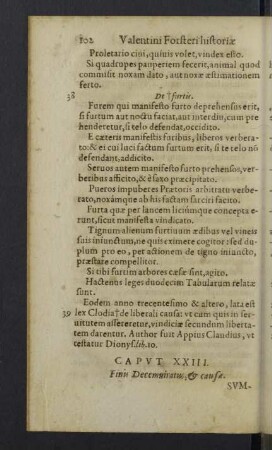 102 Valentini Forsteri historiæ
Proletario ciui, quiuis volet, vindex esto.
Si quadrupes pauperiem fecerit, animal quod
commisit noxam dato, aut noxæ æstimationem
ferto.
38 De † furtis.
Furem qui manifesto furto deprehensus erit,
si furtum aut noctu faciat, aut interdiu, cum pre
henderetur, si telo defendat, occidito.
E cæteris manifestis furibus, liberos verbera-
to: & ei cui luci factum furtum erit, si te telo nõ
defendant, addicito.
Seruos autem manifesto furto prehensos, ver-
beribus afficito, & è saxo præcipitato.
Pueros impuberes Prætoris arbitratu verbe-
rato, noxamque ab his factam sarciri facito.
Furta quæ per lancem liciumque concepta e-
runt, sicut manifesta vindicato.
Tignum alienum furtiuum ædibus vel vineis
suis iniunctum, ne quis eximere cogitor: sed du-
plum pro eo, per actionem de tigno iniuncto,
præstare compellitor.
Si tibi furtim arbores cæsæ sint, agito.
Hactenus leges duodecim Tabularum relatæ
sunt.
Eodem anno trecentesimo & altero, lata est
39 lex Clodia † de liberali causa: vt cum quis in ser-
uitutem assereretur, vindiciæ secundum liberta-
tem darentur. Author fuit Appius Claudius, vt
testatur Dionys. lib. 10.
CAPVT XXIII.
Finis Decemuiratus, & causæ.
SVM-